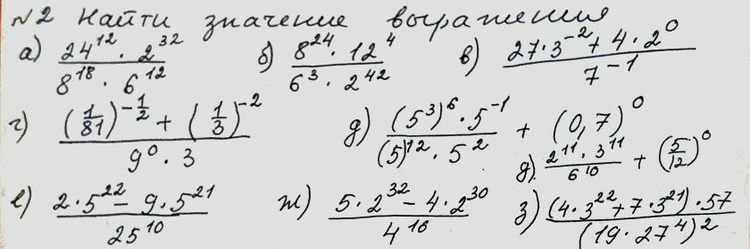 №2 Найти значение выражения
а) (24^12 · 2^32)/(8^18 · 6^12) б) (8^24 · 12^4)/(6^3 · 2^42) в) (27·3^-2 + 4·2^0)/(7^-1)
г) ((1/81)^-1/2 + (1/3)^-2)/(9^0 · 3) д) ((5^3)^6 · 5^-1)/((5)^12 · 5^2) + (0,7)^0 д). (2^11 · 3^11)/(6^10) + (5/12)^0
е) (2·5^22 - 9·5^21)/(25^10) ж) (5·2^32 - 4·2^30)/(4^16) з) ((4·3^22 + 7·3^21)·57)/((19·27^4)^2)